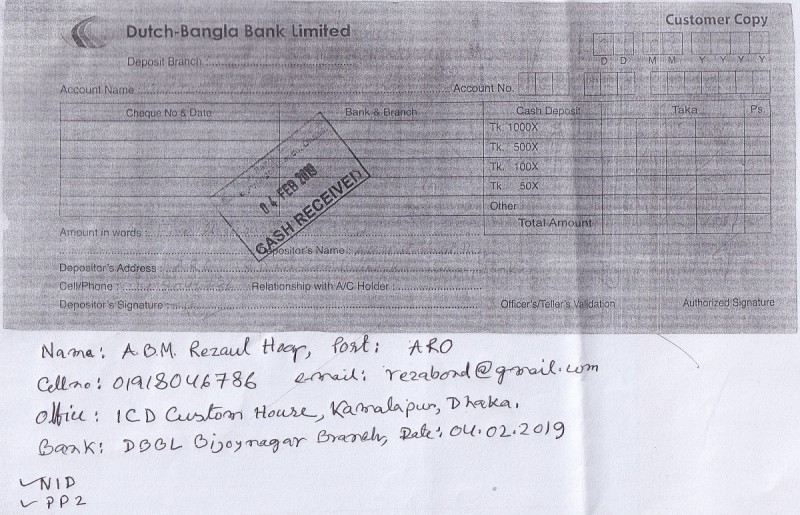 Customer Copy
Dutch-Bangla Bank Limited
Deposit Branch :
D D M M Y Y Y Y
Account Name : Account No.
Cheque No & Date Bank & Branch Cash Deposit Taka Ps.
Tk. 1000X
Tk. 500X
Tk. 100X
Tk. 50X
Other
Total Amount
04 FEB 2019
CASH RECEIVED
Amount in words :
Depositor's Name :
Depositor's Address :
Cell/Phone : Relationship with A/C Holder :
Depositor's Signature : Officer's/Teller's Validation Authorized Signature
Name: A.B.M. Rezaul Hoqr, Post: ARO
Cell no: 01918046786 email: rezabond@gmail.com
Office: ICD Custom House, Kamalapur, Dhaka.
Bank: DBBL Bijoynagar Branch, Date: 04.02.2019
✓NID
✓PP2